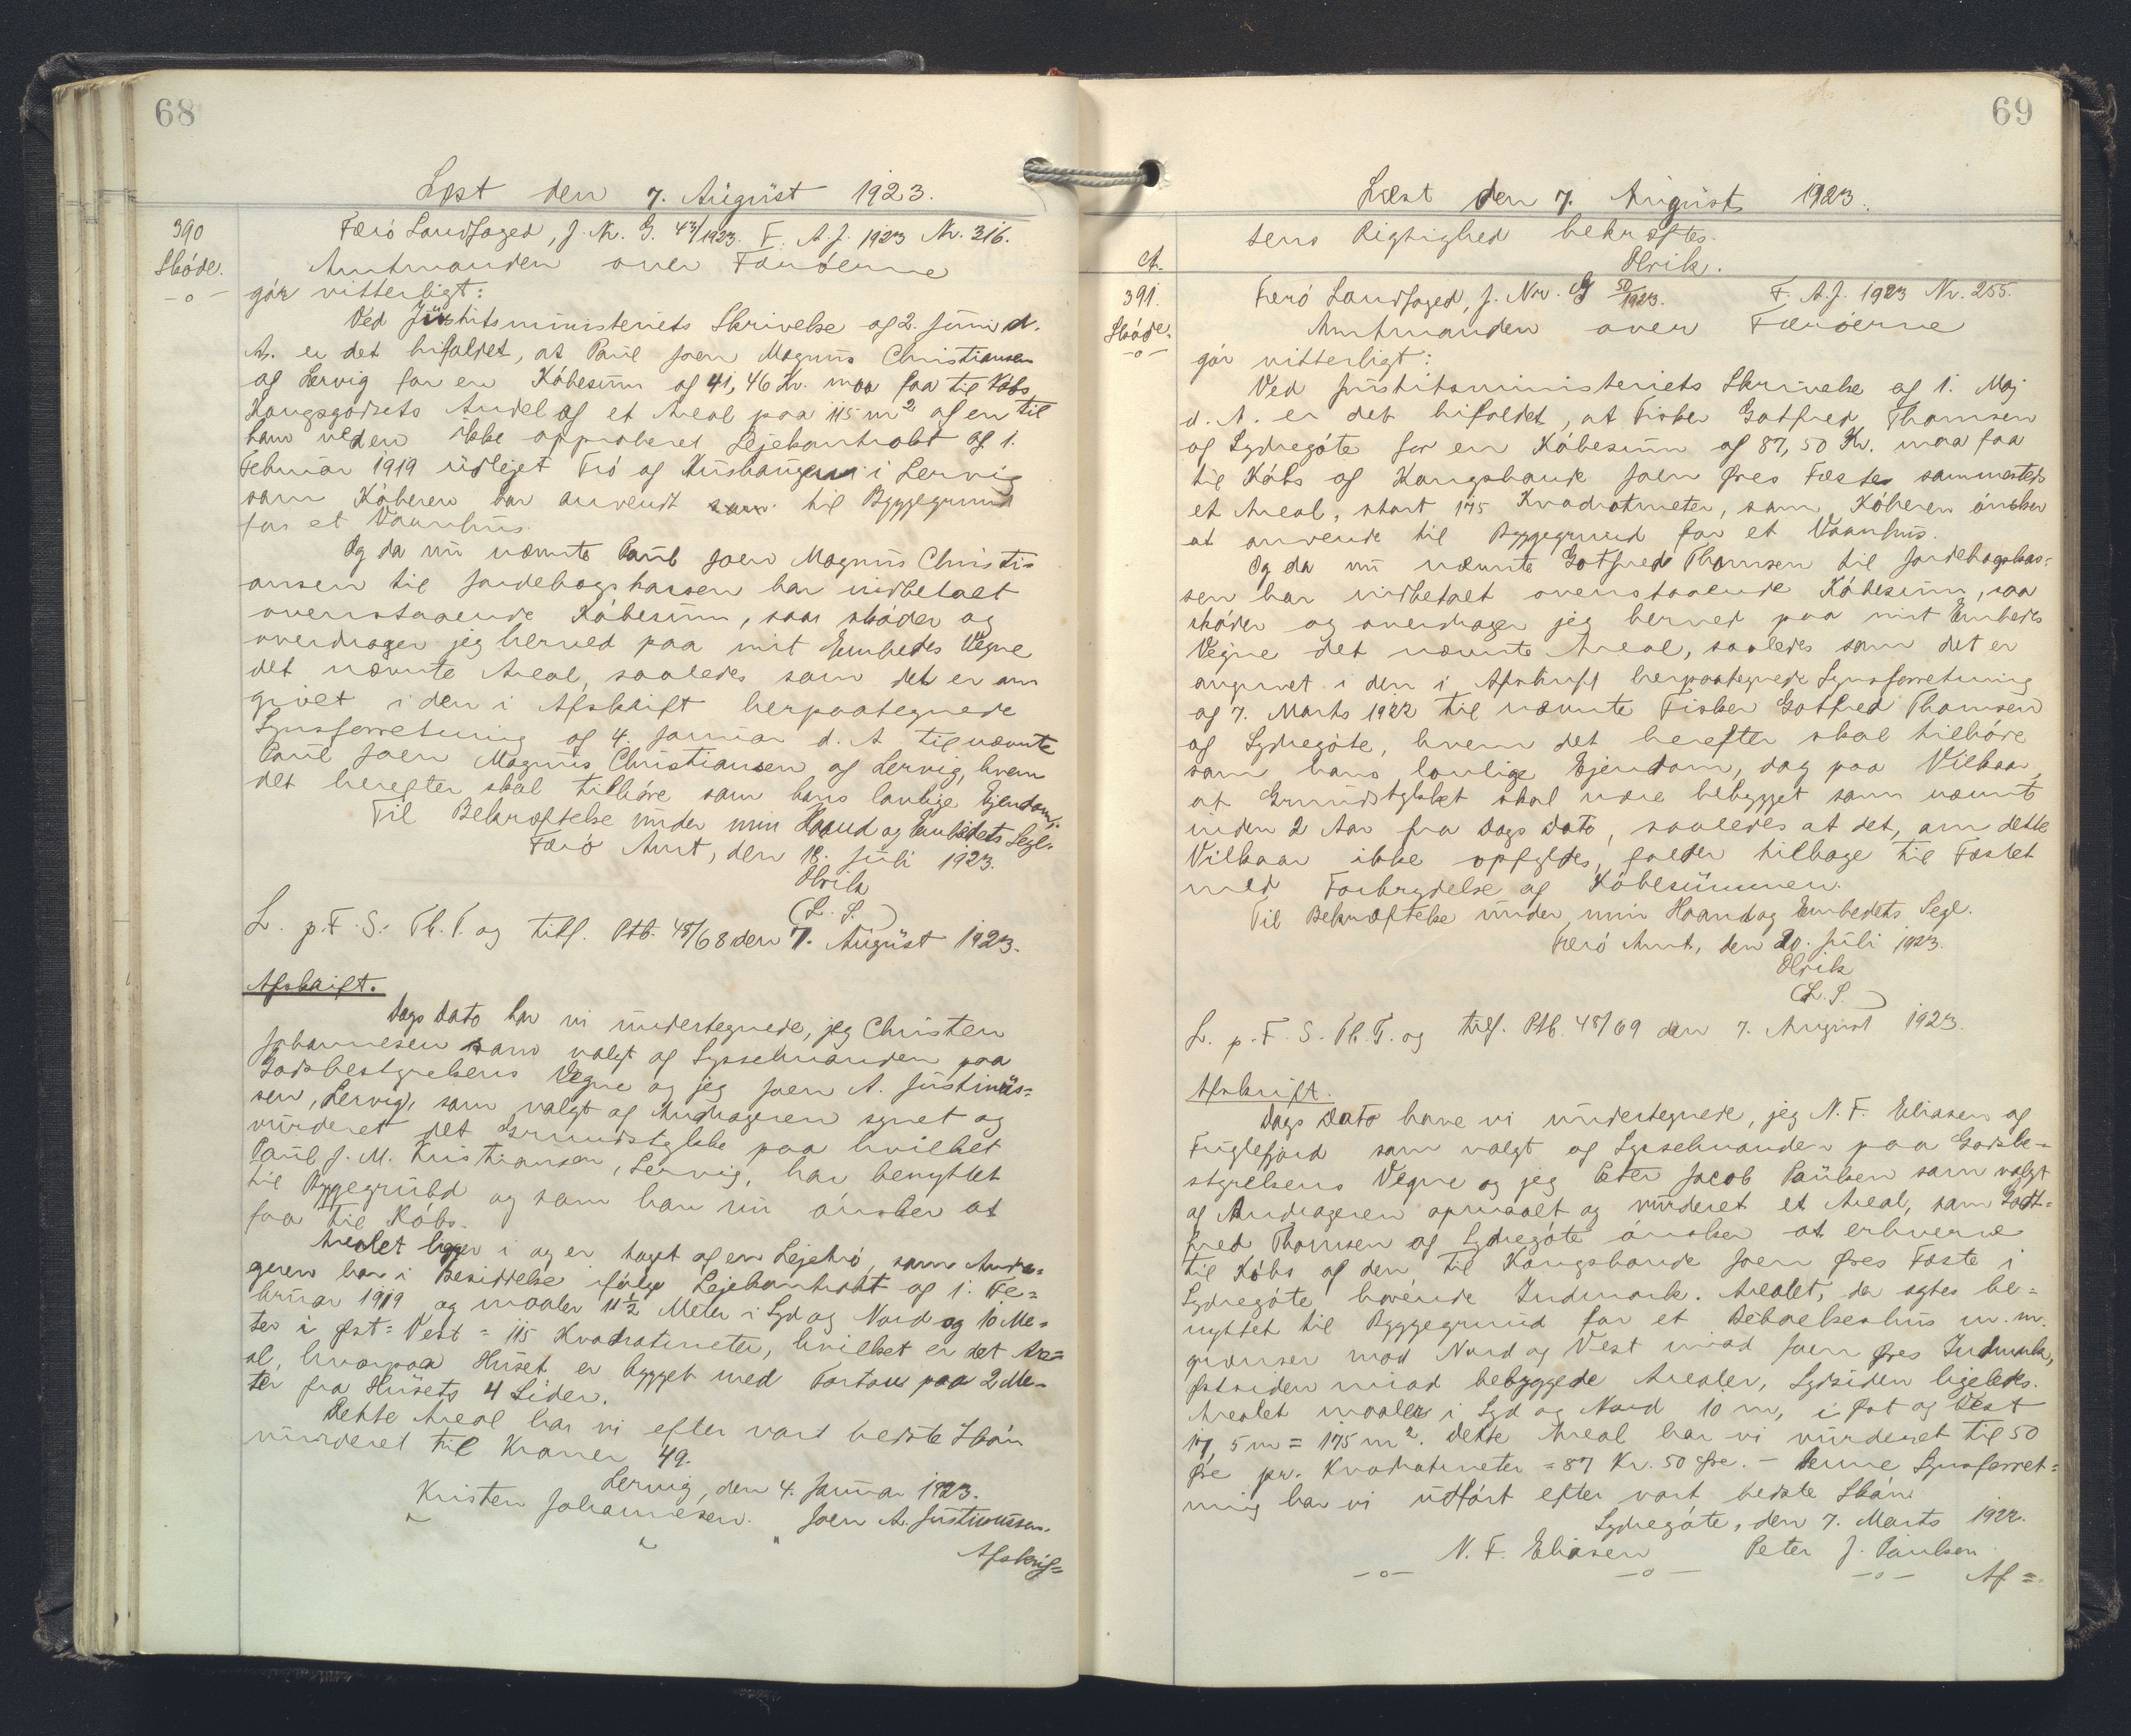 68
Læst den 7. August 1923.
390
Skøde.
Færö Landfoged, J. Nr. G. 47/1923. F. A. J. 1923 Nr. 316.
Amtmanden over Færöerne
gör vitterligt:
Ved Justitsministeriets Skrivelse af 2. Juni d.
A. er det bifaldet, at Paul Joen Magnus Christiansen
af Lervig for en Köbesum af 41,46 Kr. maa faa til Köbs
Kongsgodsets Andel af et Areal paa 115 m² af en til
ham ved en ikke approberet Lejekontrakt af 1.
Februar 1919 udlejet Trö af Kushaugen i Lervig
som Köberen har anvendt til Byggegrund
for et Vaanhus.
Og da nu nævnte Paul Joen Magnus Christi-
ansen til Jordebogskassen har indbetalt
ovenstaaende Köbesum, saa sköder og
overdrager jeg herved paa mit Embedes Vegne
det nævnte Areal, saaledes som det er an
givet i den i Afskrift herpaategnede
Synsforretning af 4. Januar d. A. til nævnte
Paul Joen Magnus Christiansen af Lervig, hvem
det herefter skal tilhöre som hans lovlige Ejendom.
Til Bekræftelse under min Haand og Embedets Segl.
Færö Amt, den 18. Juli 1923.
Olrik
(L. S.)
L. p. F. S. Th. T. og tilf. Ptb. 48/68 den 7. August 1923.
Afskrift.
Dags Dato har vi undertegnede, jeg Christen
Johannesen som valgt af Sysselmanden paa
Godsbestyrelsens Vegne og jeg Joen A. Justinus=
sen, Lervig, som valgt af Andrageren synet og
vurderet det Grundstykke paa hvilket
Paul J. M. Kristiansen, Lervig, har benyttet
til Byggegrubd og som han nu önsker at
faa til Köbs.
Arealet ligger i og er taget af en Lejetrö, som Andra=
geren har i Besiddelse ifölge Lejekontrakt af 1. Fe=
bruar 1919 og maaler 11½ Meter i Syd og Nord og 10 Me=
ter i Øst= Vest = 115 Kvadratmeter, hvilket er det Are=
al, hvorpaa Huset er bygget med Fortou paa 2 Me=
ter fra Husets 4 Sider.
Dette Areal har vi efter vort bedste Skön
vurderet til Kroner 49.
Lervig, den 4. Januar 1923.
Kristen Johannesen. Joen A. Justinussen.
Afskrif=
69
Læst den 7. August 1923.
tens Rigtighed bekræftes.
Olrik.
A.
391.
Sköde.
Færö Landfoged, J. Nr. G 50/1923. F. A. J. 1923 Nr. 255.
Amtmanden over Færöerne
gör vitterligt:
Ved Justitsministeriets Skrivelse af 1. Maj
d. A. er det bifaldet, at Fisker Gotfred Thomsen
af Sydregöte for en Köbesum af 87,50 Kr. maa faa
til Köbs af Kongsbonde Joen Øres Fæste sammesteds
et Areal, stort 175 Kvadratmeter, som Köberen önsker
at anvende til Byggegrund for et Vaanhus.
Og da nu nævnte Gotfred Thomsen til Jordebogskas=
sen har indbetalt ovenstaaende Köbesum, saa
sköder og overdrager jeg herved paa mit Embeds
Vegne det nævnte Areal, saaledes som det er
angivet i den i Afskrift herpaategnede Synsforretning
af 7. Marts 1922 til nævnte Fisker Gotfred Thomsen
af Sydregöte, hvem det herefter skal tilhöre
som hans lovlige Ejendom, dog paa Vilkaar,
at Grundstykket skal være bebygget som nævnt
inden 2 Aar fra Dags Dato, saaledes at det, om dette
Vilkaar ikke opfyldes, falder tilbage til Fæstet
med Forbrydelse af Köbesummen.
Til Bekræftelse under min Haand og Embedets Segl.
Færö Amt, den 20. Juli 1923.
Olrik
(L. S.)
L. p. F. S. Th. T. og tilf. Ptb. 48/69 den 7. August 1923.
Afskrift.
Dags Dato have vi undertegnede, jeg N. F. Eliasen af
Fuglefjord som valgt af Sysselmanden paa Godsbe=
styrelsens Vegne og jeg Peter Jacob Paulsen som valgt
af Andrageren opmaalt og vurderet et Areal, som Godt=
fred Thomsen af Sydregöte önsker at erhverve
til Köbs af den til Kongsbonde Joen Øres Fæste i
Sydregöte hörende Indmark. Arealet, der agtes be=
nyttet til Byggegrund for et Beboelseshus m. m.
grænser mod Nord og Vest mod Joen Øres Indmark,
Østsiden mod bebyggede Arealer, Sydsiden ligeledes.
Arealet maaler i Syd og Nord 10 m, i Øst og Vest
17,5 m = 175 m². Dette Areal har vi vurderet til 50
Øre pr. Kvadratmeter = 87 Kr. 50 Øre. - Denne Synsforret=
ning har vi udfört efter vort bedste Skön.
Sydregöte, den 7. Marts 1922.
N. F. Eliasen Peter J. Paulsen
Af=